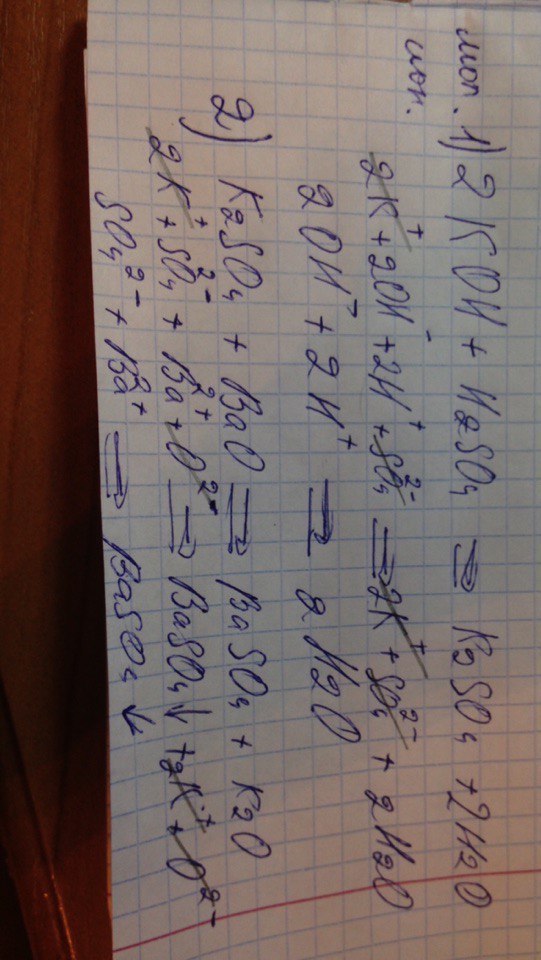 мол. 1) 2KOH + H2SO4 ⇒ K2SO4 + 2H2O
ион. 2K⁺ + 2OH⁻ + 2H⁺ + SO4²⁻ ⇒ 2K⁺ + SO4²⁻ + 2H2O
2OH⁻ + 2H⁺ ⇒ 2H2O
2) K2SO4 + BaO ⇒ BaSO4 + K2O
2K⁺ + SO4²⁻ + Ba²⁺ + O²⁻ ⇒ BaSO4↓ + 2K⁺ + O²⁻
SO4²⁻ + Ba²⁺ ⇒ BaSO4↓